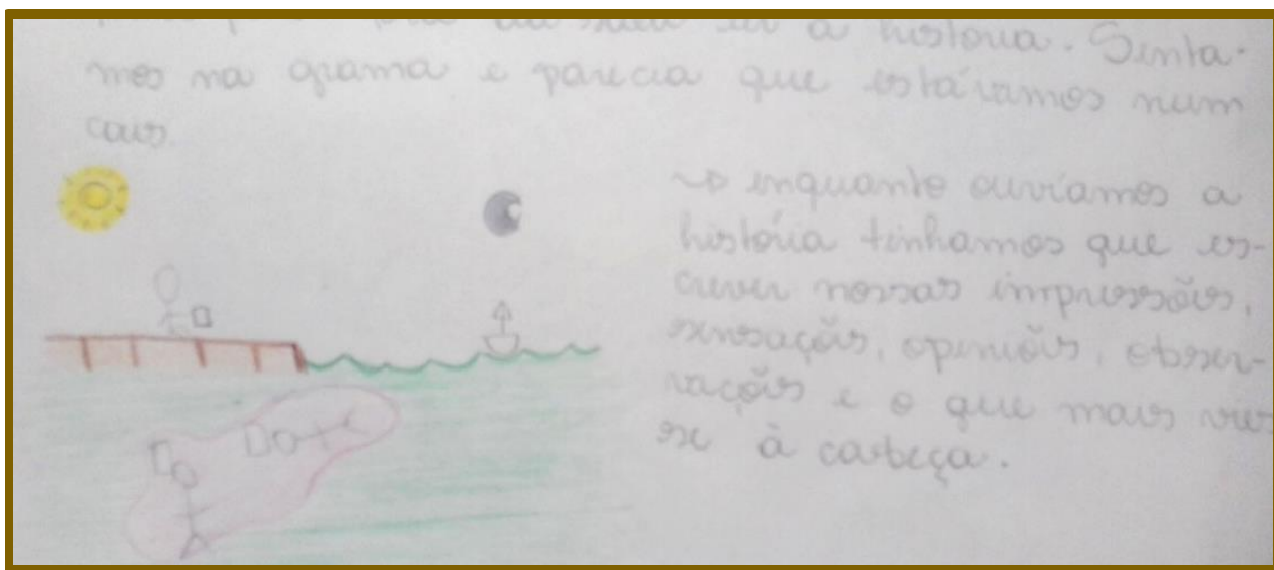 a história. Senta-
mos na grama e parecia que estávamos num
cais.
enquanto ouvíamos a
história tinhamos que es-
crever nossas impressões,
sensações, opiniões, obser-
vações e o que mais vies
se à cabeça.